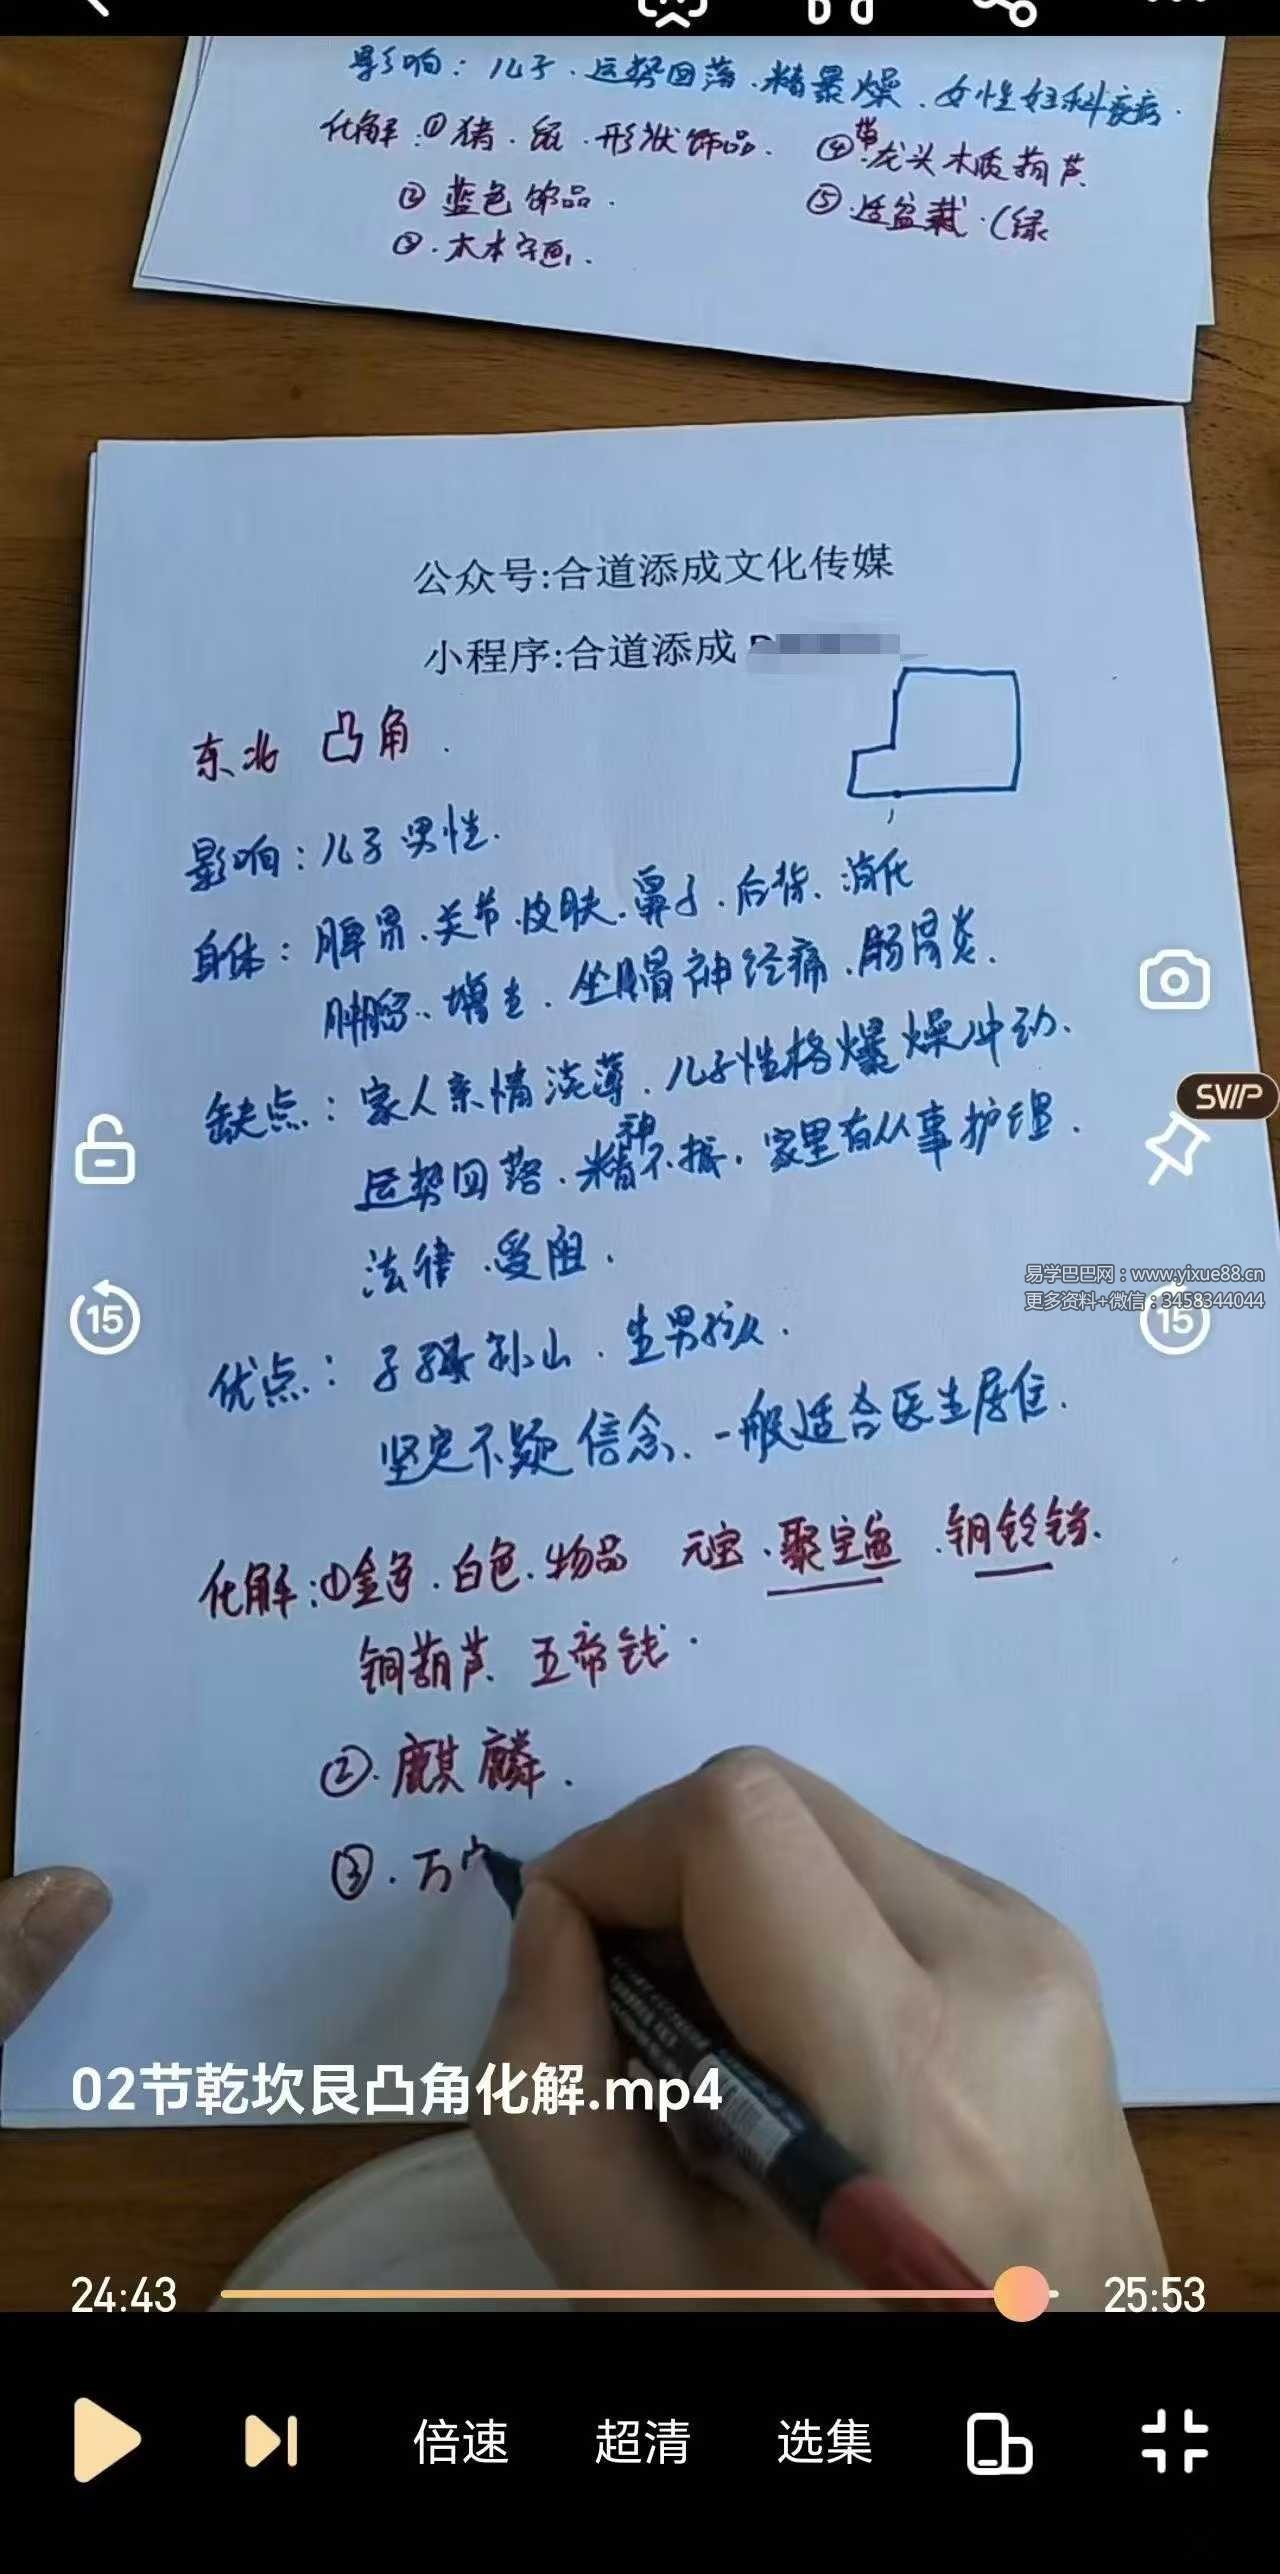 影响：儿子．运势回落．精暴燥．女性妇科疾病．
化解：①猪．鼠．形状饰品．
②蓝色饰品．
③．木本字画．
④带．龙头木质葫芦
⑤．适盆栽．(绿
公众号:合道添成文化传媒
小程序:合道添成
东北 凸角．
影响：儿子男性．
身体：脾胃、关节、皮肤、鼻子．后背、消化
肿瘤、增生．坐骨神经痛．肠胃炎．
缺点：家人亲情淡薄．儿子性格爆燥冲动．
运势回落．精神不振．家里有从事护理．
法律．受阻．
优点：子孙山．生男孩．
坚定不疑信念．一般适合医生居住．
化解：①金色．白色．物品 元宝．聚宝盆．铜铃铛．
铜葫芦 五帝钱．
②．麒麟．
③．万
SVIP
易学巴巴网：www.yixue88.cn
更多资料+微信：3458344044
15
15
02节乾坎艮凸角化解.mp4
24:43
25:53
倍速
超清
选集